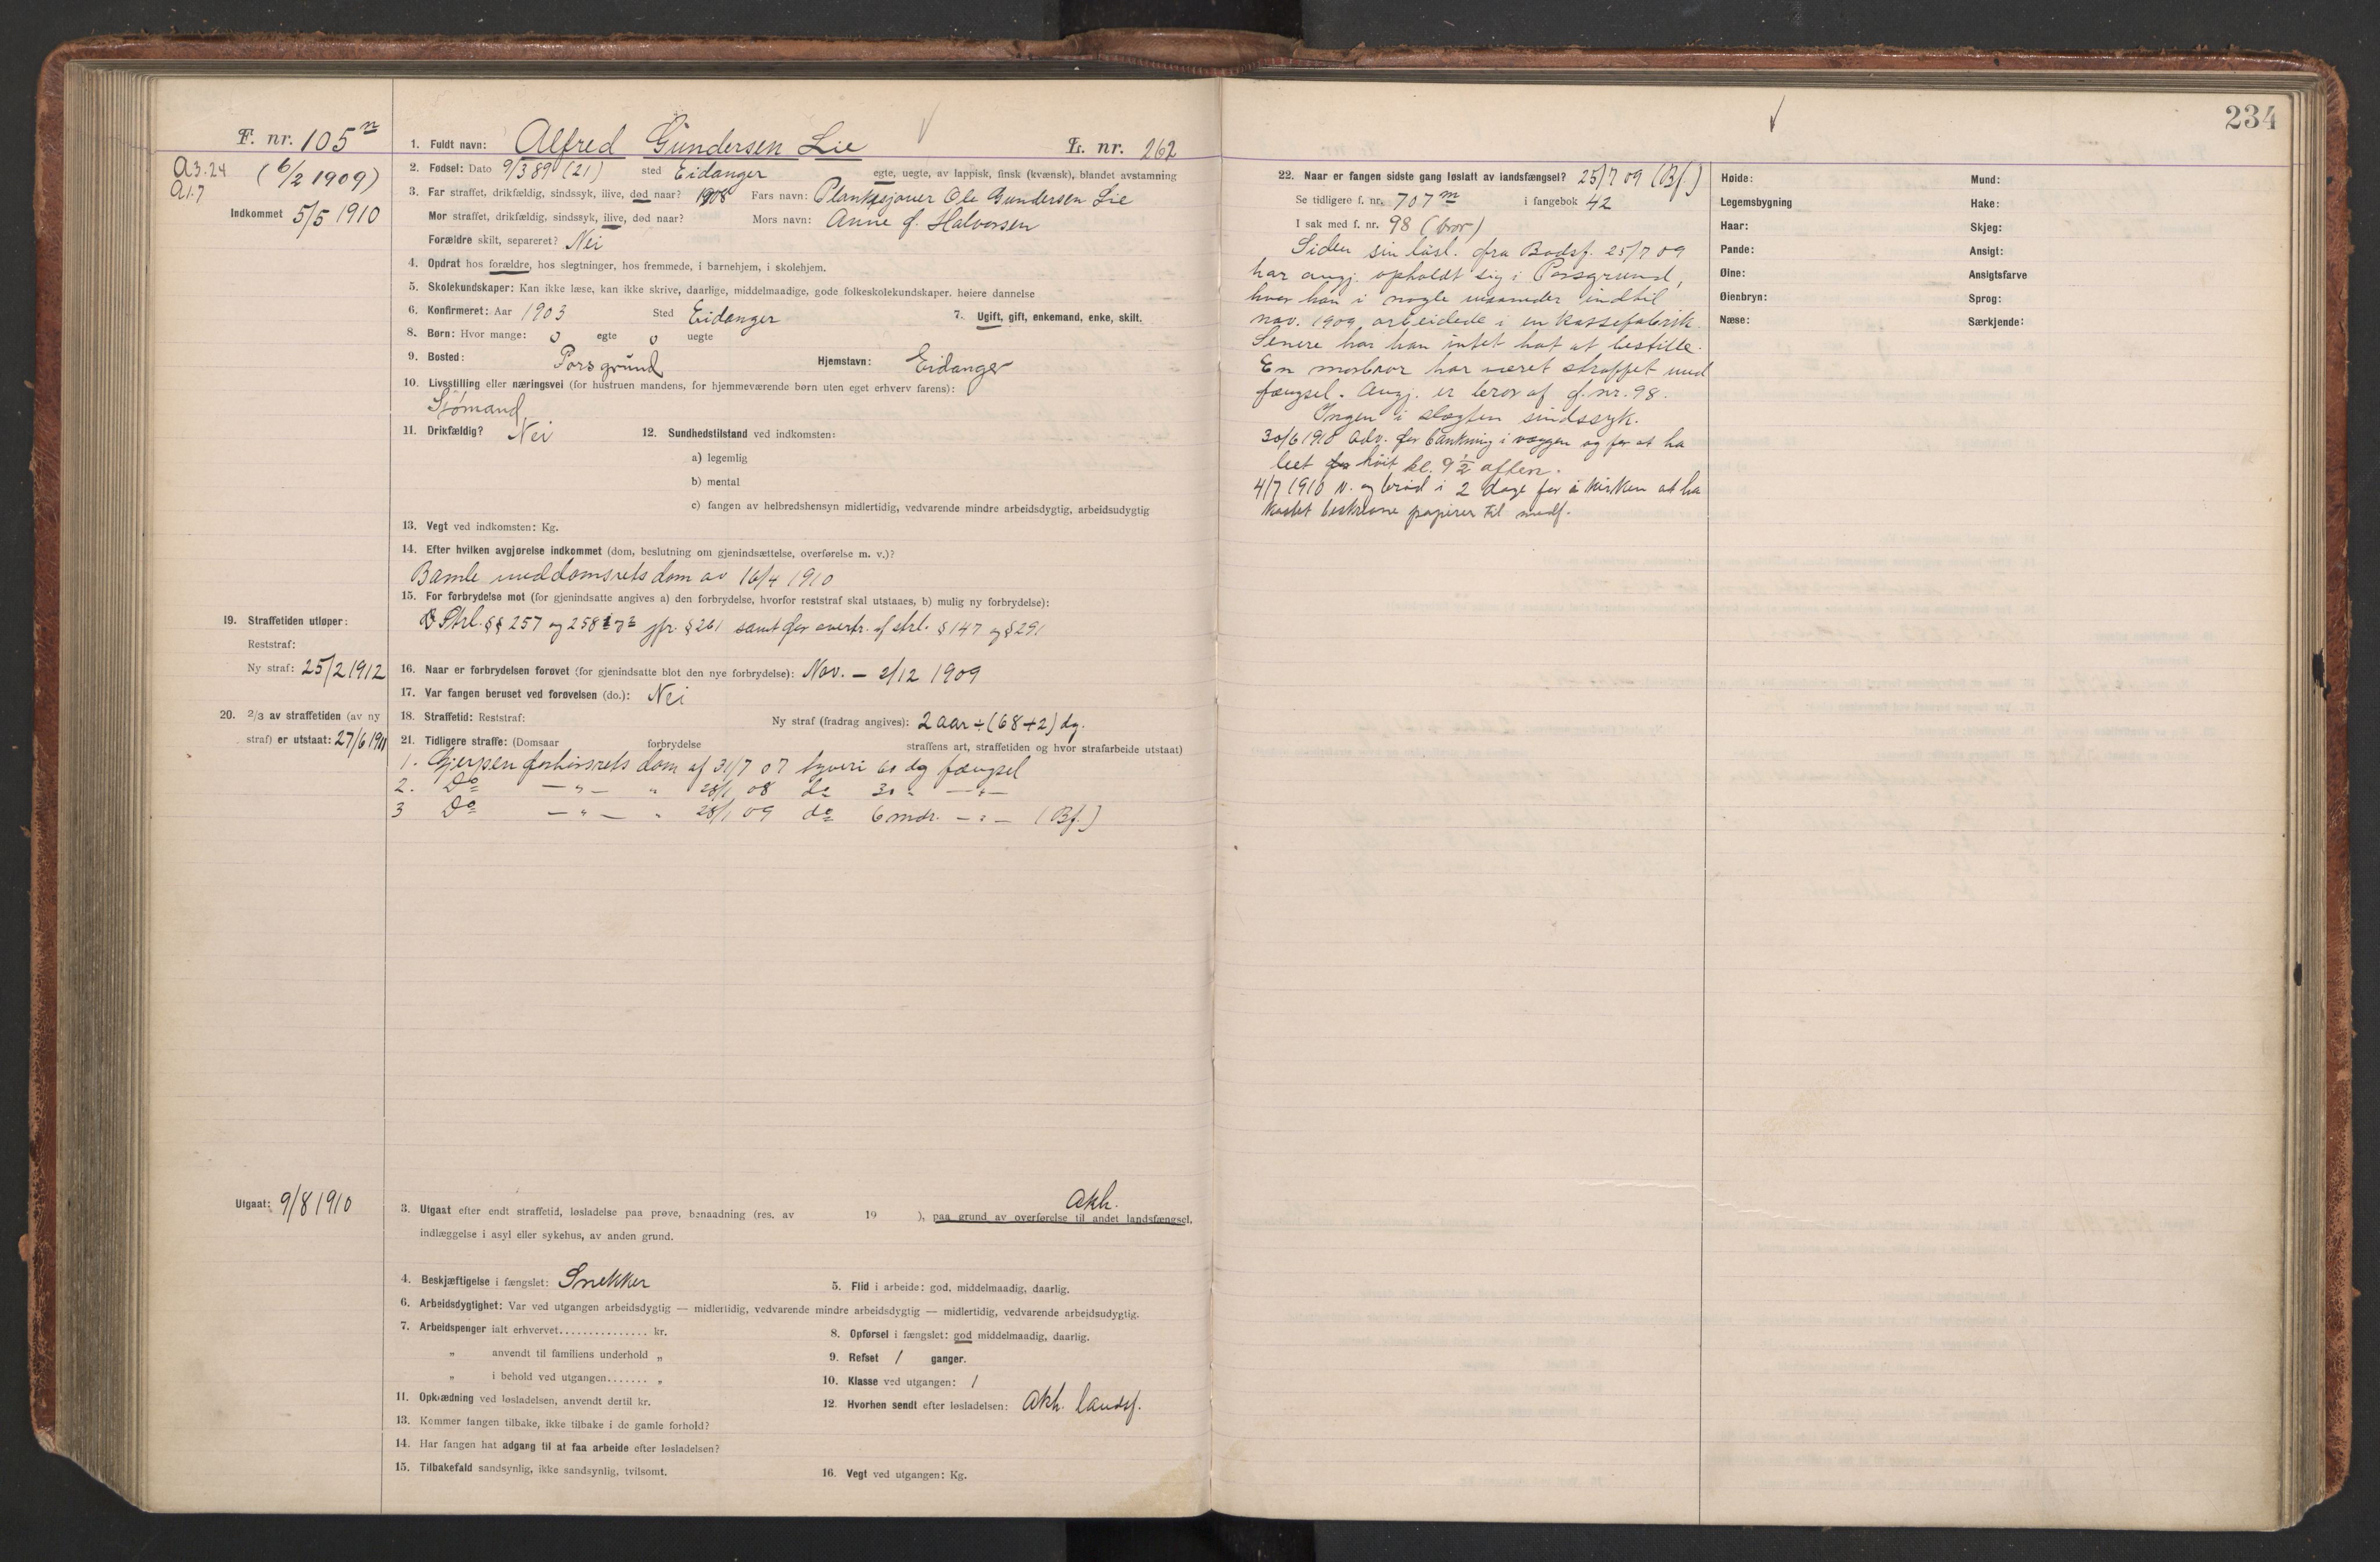 234
F. nr. 105 n
A3.24
A1.7
(6/2 1909)
Indkommet 5/5 1910
1. Fuldt navn: Alfred Gundersen Lie L. nr. 262
2. Fødsel: Dato 9/3 89 (21) sted Eidanger egte, uegte, av lappisk, finsk (kvænsk), blandet avstamning
3. Far straffet, drikfældig, sindssyk, ilive, død naar? 1908 Fars navn: Plankesjauer Ole Gundersen Lie
Mor straffet, drikfældig, sindssyk, ilive, død naar? Mors navn: Anne f. Halvorsen
Forældre skilt, separeret? Nei
4. Opdrat hos forældre, hos slegtninger, hos fremmede, i barnehjem, i skolehjem.
5. Skolekundskaper: Kan ikke læse, kan ikke skrive, daarlige, middelmaadige, gode folkeskolekundskaper. høiere dannelse
6. Konfirmeret: Aar 1903 Sted Eidanger 7. Ugift, gift, enkemand, enke, skilt.
8. Børn: Hvor mange: 0 egte 0 uegte
9. Bosted: Porsgrund Hjemstavn: Eidanger
10. Livsstilling eller næringsvei (for hustruen mandens, for hjemmeværende børn uten eget erhverv farens):
Sjømand
11. Drikfældig? Nei 12. Sundhedstilstand ved indkomsten:
a) legemlig
b) mental
c) fangen av helbredshensyn midlertidig, vedvarende mindre arbeidsdygtig, arbeidsudygtig
13. Vegt ved indkomsten: Kg.
14. Efter hvilken avgjørelse indkommet (dom, beslutning om gjenindsættelse, overførelse m. v.)?
Bamle meddomsrets dom av 16/4 1910
15. For forbrydelse mot (for gjenindsatte angives a) den forbrydelse, hvorfor reststraf skal utstaaes, b) mulig ny forbrydelse):
Strl. §§ 257 og 258 jfr. § 261 samt for overtr. af strl. § 147 og § 291
16. Naar er forbrydelsen forøvet (for gjenindsatte blot den nye forbrydelse): Nov. – 2/12 1909
17. Var fangen beruset ved forøvelsen (do.): Nei
18. Straffetid: Reststraf: Ny straf (fradrag angives): 2 aar ÷ (68+2) dg.
19. Straffetiden utløper:
Reststraf:
Ny straf: 25/2 1912
20. 2/3 av straffetiden (av ny
straf) er utstaat: 27/6 1911
21. Tidligere straffe: (Domsaar forbrydelse straffens art, straffetiden og hvor strafarbeide utstaat)
1. Gjerpen forhørsrets dom af 31/7 07 tyveri 60 dg fængsel
2. Do – " – " 28/1 08 do 30 " – " –
3 Do – " – " 28/1 09 do 6 mdr. – " – (Bf.)
Utgaat: 9/8 1910
Akh.
3. Utgaat efter endt straffetid, løsladelse paa prøve, benaadning (res. av 19 ), paa grund av overførelse til andet landsfængsel,
indlæggelse i asyl eller sykehus, av anden grund.
4. Beskjæftigelse i fængslet: Snekker 5. Flid i arbeide: god, middelmaadig, daarlig.
6. Arbeidsdygtighet: Var ved utgangen arbeidsdygtig — midlertidig, vedvarende mindre arbeidsdygtig — midlertidig, vedvarende arbeidsudygtig.
7. Arbeidspenger ialt erhvervet............... kr. 8. Opførsel i fængslet: god middelmaadig, daarlig.
„ anvendt til familiens underhold „ 9. Refset 1 ganger.
„ i behold ved utgangen....... „ 10. Klasse ved utgangen: 1
11. Opklædning ved løsladelsen, anvendt dertil kr. 12. Hvorhen sendt efter løsladelsen: Akh. landsf.
13. Kommer fangen tilbake, ikke tilbake i de gamle forhold?
14. Har fangen hat adgang til at faa arbeide efter løsladelsen?
15. Tilbakefald sandsynlig, ikke sandsynlig, tvilsomt. 16. Vegt ved utgangen: Kg.
22. Naar er fangen sidste gang løslatt av landsfængsel? 25/7 09 (Bf.)
Se tidligere f. nr. 707 m i fangebok 42
I sak med f. nr. 98 (bror)
Siden sin løsl. fra Bodsf. 25/7 09
har angj. opholdt sig i Porsgrund,
hvor han i nogle maaneder indtil
nov. 1909 arbeidede i en kassefabrik.
Senere har han intet hat at bestille.
En morbror har været straffet med
fængsel. Angj. er bror af f. nr. 98.
Ingen i slægten sindssyk.
30/6 1910 Adv. for bankning i væggen og for at ha
leet høit kl. 9½ aften.
4/7 1910 V. og brød i 2 dage for i kirken at ha
kastet beskrevne papirer til medf.
Høide: Mund:
Legemsbygning Hake:
Haar: Skjeg:
Pande: Ansigt:
Øine: Ansigtsfarve
Øienbryn: Sprog:
Næse: Særkjende: